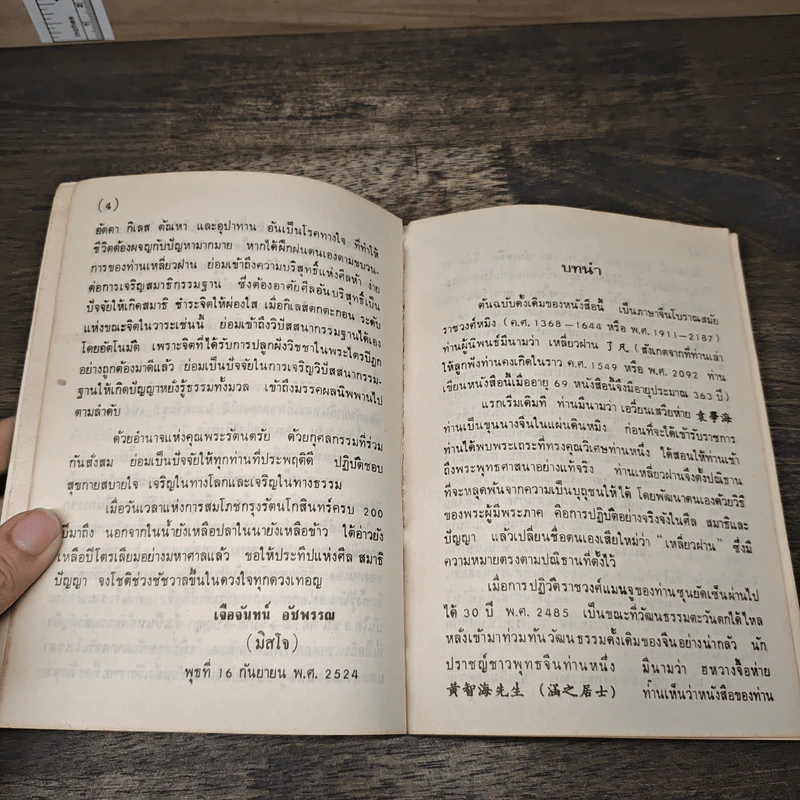 (4)
อัตตา กิเลส ตัณหา และอุปาทาน อันเป็นโรคทางใจ ที่ทำให้
ชีวิตต้องผจญกับปัญหามากมาย หากได้ฝึกฝนตนเองตามขบวน-
การของท่านเหลี่ยวฝาน ย่อมเข้าถึงความบริสุทธิ์แห่งศีลห้า ง่าย
ต่อการเจริญสมาธิกรรมฐาน ซึ่งต้องอาศัยศีลอันบริสุทธิ์เป็น
ปัจจัยให้เกิดสมาธิ ชำระจิตให้ผ่องใส เมื่อกิเลสตกตะกอน ระดับ
แห่งขณะจิตในวาระเช่นนี้ ย่อมเข้าถึงวิปัสสนากรรมฐานได้เอง
โดยอัตโนมัติ เพราะจิตที่ได้รับการปลูกฝังวิชชาในพระไตรปิฎก
อย่างถูกต้องมาดีแล้ว ย่อมเป็นปัจจัยในการเจริญวิปัสสนากรรม-
ฐานให้เกิดปัญญาหยั่งรู้ธรรมทั้งมวล เข้าถึงมรรคผลนิพพานไป
ตามลำดับ
ด้วยอำนาจแห่งคุณพระรัตนตรัย ด้วยกุศลกรรมที่ร่วม
กันสั่งสม ย่อมเป็นปัจจัยให้ทุกท่านที่ประพฤติดี ปฏิบัติชอบ
สุขกายสบายใจ เจริญในทางโลกและเจริญในทางธรรม
เมื่อวันเวลาแห่งการสมโภชกรุงรัตนโกสินทร์ครบ 200
ปีมาถึง นอกจากในน้ำยังเหลือปลาในนายังเหลือข้าว ใต้อ่าวยัง
เหลือปิโตรเลียมอย่างมหาศาลแล้ว ขอให้ประทีปแห่งศีล สมาธิ
ปัญญา จงโชติช่วงชัชวาลขึ้นในดวงใจทุกดวงเทอญ
เจือจันทน์ อัชพรรณ
(มิสโจ)
พุธที่ 16 กันยายน พ.ศ. 2524
บทนำ
ต้นฉบับดั้งเดิมของหนังสือนี้ เป็นภาษาจีนโบราณสมัย
ราชวงศ์หมิง (ค.ศ. 1368—1644 หรือ พ.ศ. 1911—2187)
ท่านผู้นิพนธ์มีนามว่า เหลี่ยวฝาน 了凡 (สังเกตจากที่ท่านเล่า
ให้ลูกฟังท่านคงเกิดในราว ค.ศ. 1549 หรือ พ.ศ. 2092 ท่าน
เขียนหนังสือนี้เมื่ออายุ 69 หนังสือนี้จึงมีอายุประมาณ 363 ปี)
แรกเริ่มเดิมที ท่านมีนามว่า เอวี๋ยนเสวียห่าย 袁學海
ท่านเป็นขุนนางจีนในแผ่นดินหมิง ก่อนที่จะได้เข้ารับราชการ
ท่านได้พบพระเถระที่ทรงคุณวิเศษท่านหนึ่ง ได้สอนให้ท่านเข้า
ถึงพระพุทธศาสนาอย่างแท้จริง ท่านเหลี่ยวฝานจึงตั้งปณิธาน
ที่จะหลุดพ้นจากความเป็นบุถุชนให้ได้ โดยพัฒนาตนเองด้วยวิธี
ของพระผู้มีพระภาค คือการปฏิบัติอย่างจริงจังในศีล สมาธิและ
ปัญญา แล้วเปลี่ยนชื่อตนเองเสียใหม่ว่า "เหลี่ยวฝาน" ซึ่งมี
ความหมายตรงตามปณิธานที่ตั้งไว้
เมื่อการปฏิวัติราชวงศ์แมนจูของท่านซุนยัดเซ็นผ่านไป
ได้ 30 ปี พ.ศ. 2485 เป็นขณะที่วัฒนธรรมตะวันตกได้ไหล
หลั่งเข้ามาท่วมทับวัฒนธรรมดั้งเดิมของจีนอย่างน่ากลัว นัก
ปราชญ์ชาวพุทธจีนท่านหนึ่ง มีนามว่า ฮหวางจื้อห่าย
黃智海先生 (涵之居士) ท่านเห็นว่าหนังสือของท่าน